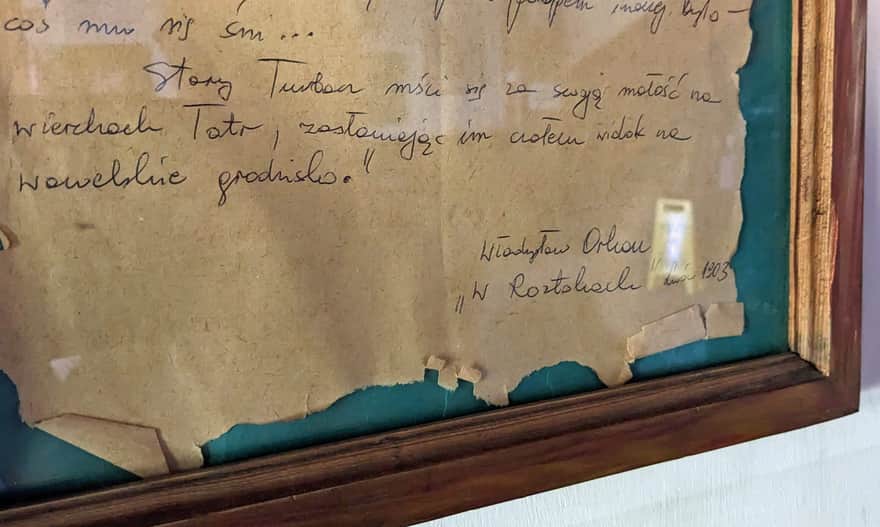 było —
coś mu się śni ...
Stary Turbacz mści się za swoją małość na
wierchach Tatr, zasłaniając im ciałem widok na
wawelskie grodzisko.”
Władysław Orkan
„W Roztokach” Lwów 1903